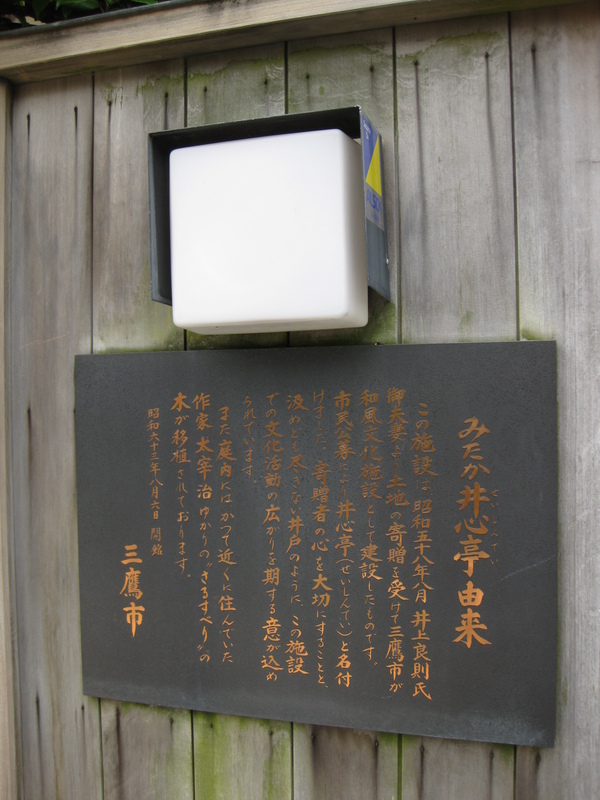 みたか井心亭由来
せいしんてい
この施設は、昭和五十八年八月 井上良則氏
御夫妻より土地の寄贈を受けて三鷹市が
和風文化施設として建設したものです。
市民公募により井心亭(せいしんてい)と名付
けました。寄贈者の心を大切にすることと、
汲めども尽きない井戸のように、この施設
での文化活動の広がりを期する意が込め
られています。
また庭内にはかつて近くに住んでいた
作家 太宰治 ゆかりの“さるすべり”の
木が移植されております。
昭和六十三年八月六日 開館
三鷹市